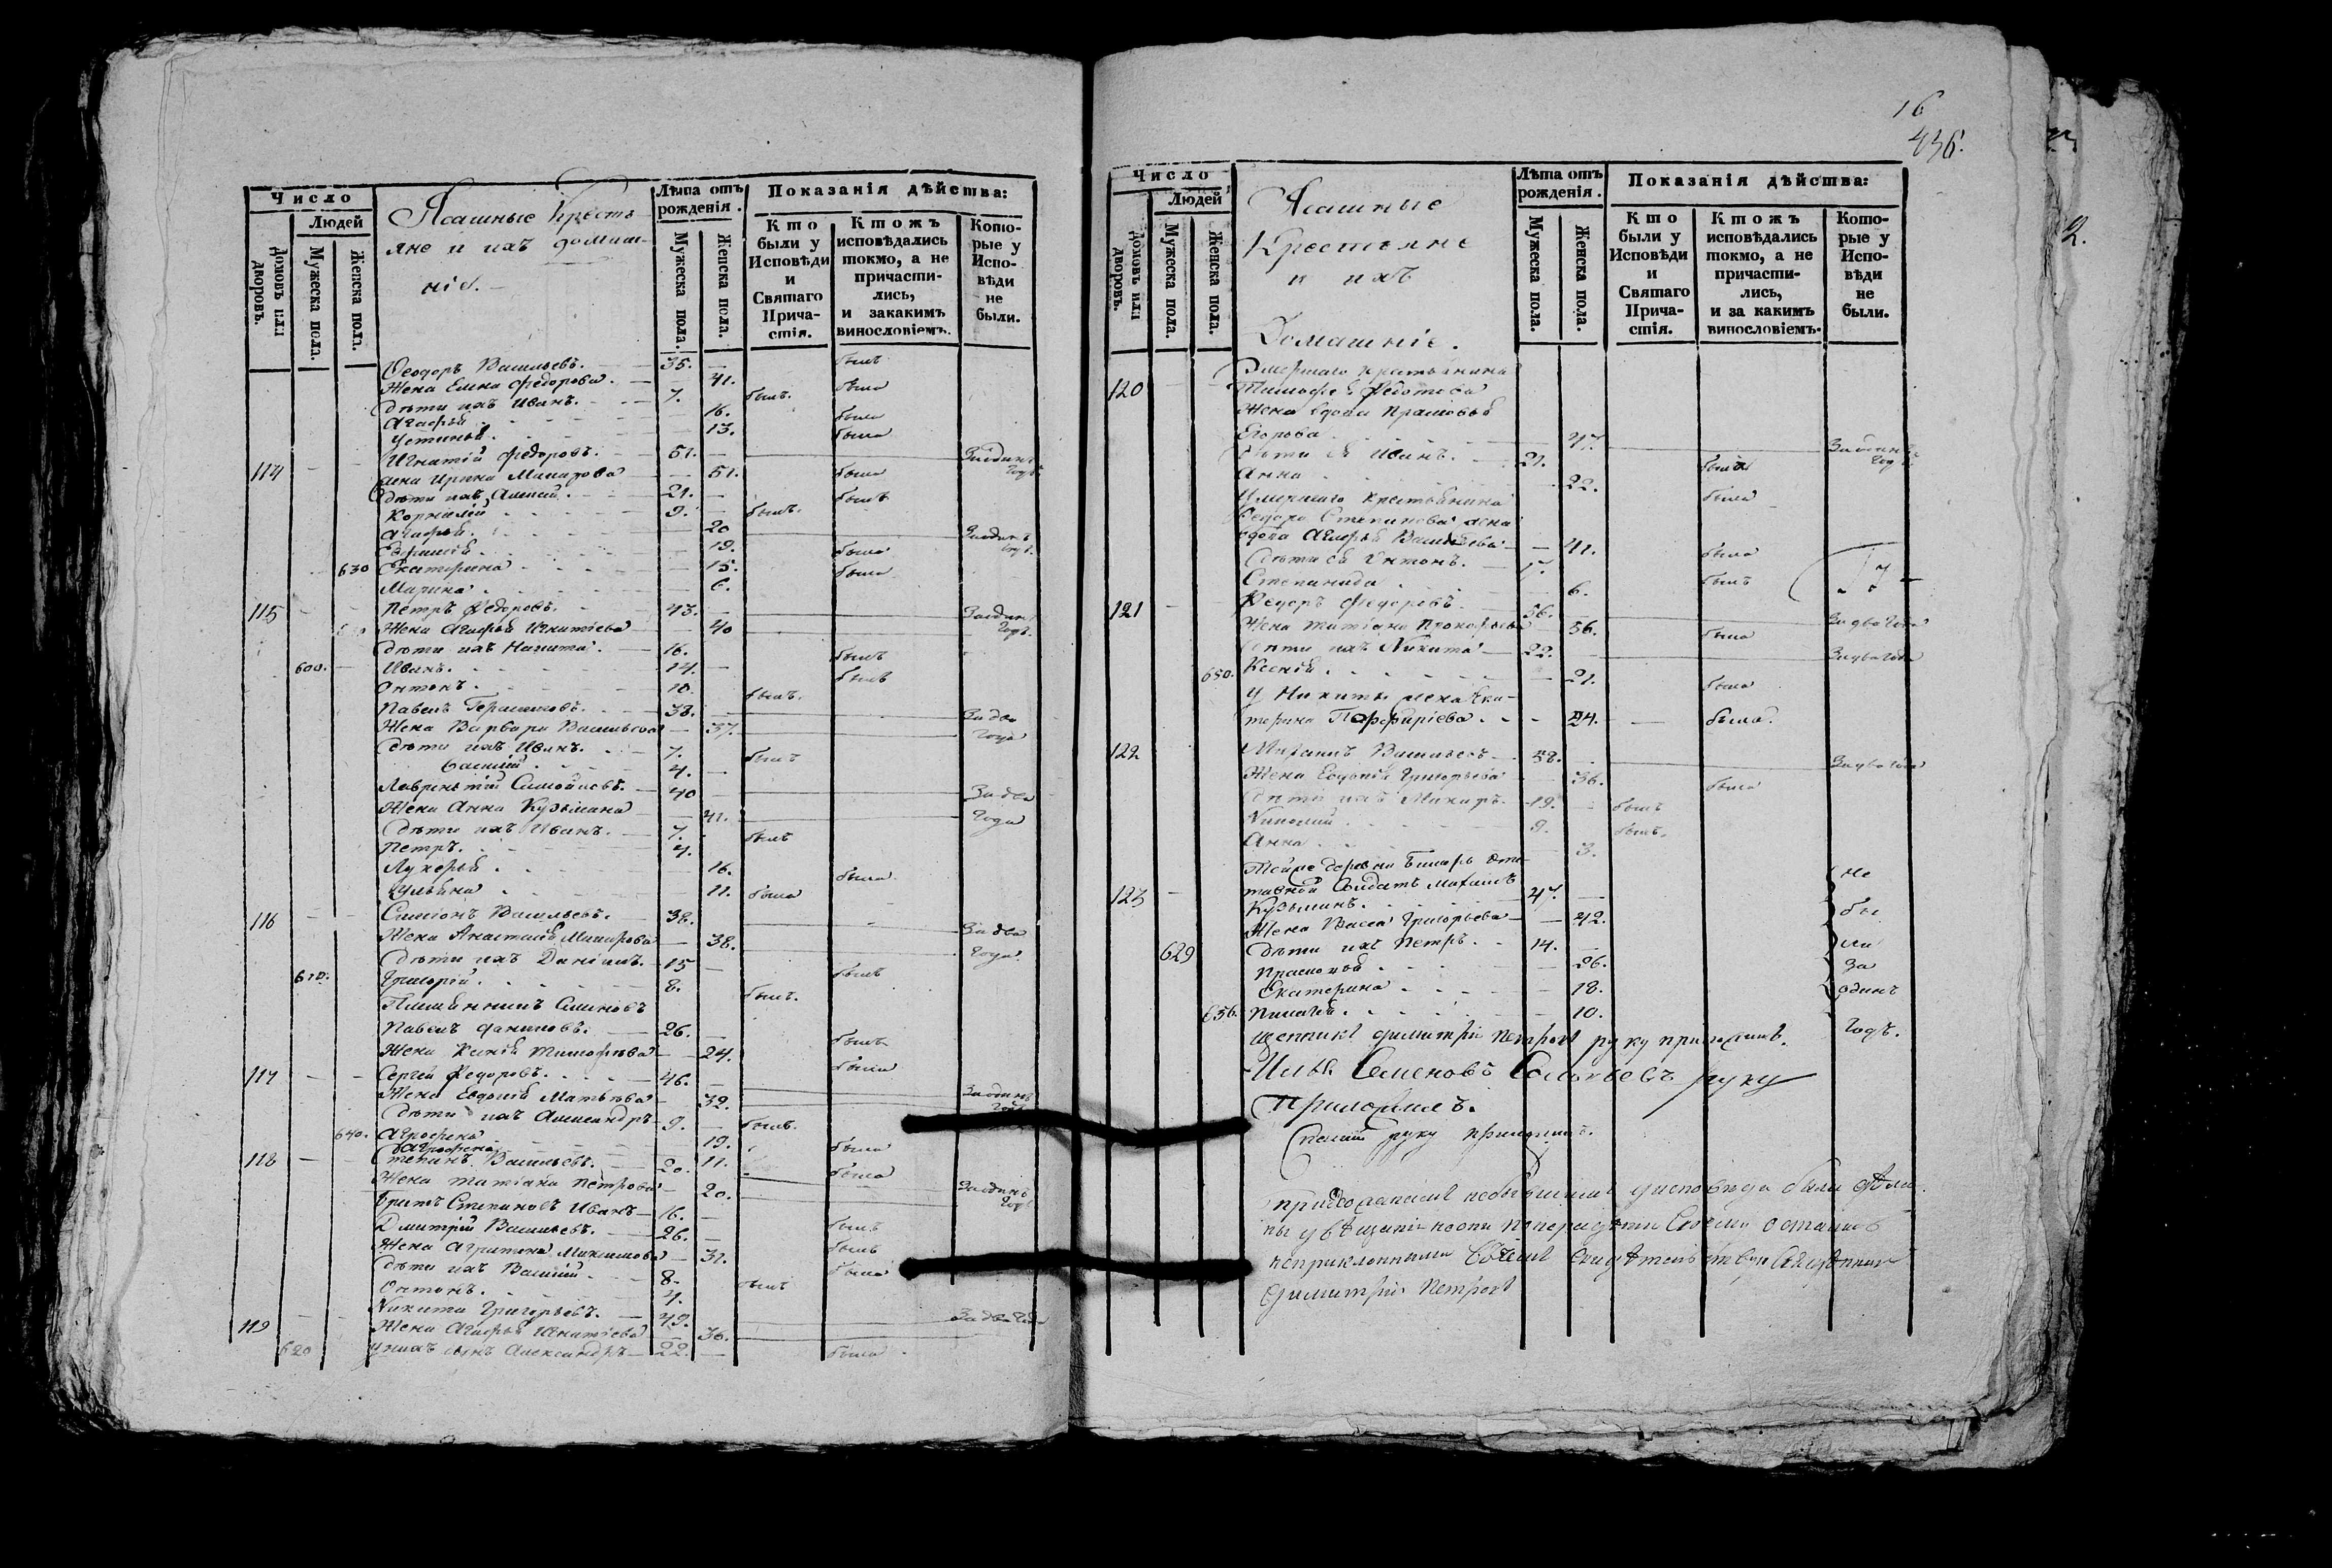 Число
Людей
домовъ или дворовъ.
Мужеска пола.
Женска пола.
Ясашные Кресть
яне и ихъ домаш-
ніе.
Лѣта отъ рожденія.
Мужеска пола.
Женска пола.
Показанія дѣйства:
Кто были у Исповѣди и Святаго Причастія.
Ктожъ исповѣдались токмо, а не причастились, и закакимъ винословіемъ.
Которые у Исповѣди не были.
Ѳеодоръ Васильевъ. 35. былъ
Жена Елена Федорова. 41. была
дѣти ихъ Иванъ. 7. былъ.
Агафья 16. была
Устинья. 13. была
114 Игнатій Федоровъ. 51. Заодинъ годъ
жена Ирина Макарова 51. была
дѣти ихъ Алексѣй. 21. былъ
Корнилій 9. былъ.
Агафья. 20 Заодинъ годъ.
19. была
630 Екатерина 15. была
Марина 6.
115 Петръ Федоровъ. 43. Заодинъ годъ.
Жена Агафья Игнатіева 40
дѣти ихъ Никита. 16. былъ
600. Иванъ. 14. былъ
Антонъ. 10. былъ.
Павелъ Герасимовъ. 38. За два
Жена Варвара Васильева 37. года
дѣти ихъ Иванъ. 7. былъ
Василій 4.
Лаврентій Симоновъ. 40 За два
Жена Анна Кузьмина 41. года
дѣти ихъ Иванъ. 7. былъ
Петръ. 4.
Лукерья 16. была
Ульяна 11. была
116 Симіонъ Васильевъ. 38. За два
Жена Анастасія Макарова 38. года.
дѣти ихъ Даніилъ. 15 былъ
610. Григорій. 8. былъ.
Племянникъ Симіоновъ
Павелъ Даниловъ. 26. былъ
Жена Ксенія Тимофѣева 24. была
117 Сергей Федоровъ. 46. Заодинъ годъ
Жена Евдокія Матвѣева 32.
дѣти ихъ Александръ 9. былъ.
640. Агрофена 19. была
Агрофена 11. была
118 Степанъ Васильевъ. 20. Заодинъ годъ
Жена Татіана Петрова 20.
Братъ Степановъ Иванъ 16. былъ
Дмитрій Васильевъ. 26. былъ
Жена Агрипена Максимова 31. была
дѣти ихъ Василій 8. былъ
Антонъ. 4.
119 Никита Григорьевъ. 42. За два года
Жена Агафья Игнатіева 36.
620 у нихъ сынъ Александръ 22. была
16
436.
Число
Людей
домовъ или дворовъ.
Мужеска пола.
Женска пола.
Ясашные
Крестьяне
и ихъ
Домашніе.
Лѣта отъ рожденія.
Мужеска пола.
Женска пола.
Показанія дѣйства:
Кто были у Исповѣди и Святаго Причастія.
Ктожъ исповѣдались токмо, а не причастились, и за какимъ винословіемъ.
Которые у Исповѣди не были.
Умершаго крестьянина
120 Тимофея Федотова
жена вдова Прасковья
Егорова 47. Заодинъ годъ.
дѣти ея Иванъ. 21. былъ
Анна 22. была
Умершаго крестьянина
Федора Степанова жена
вдова Агафья Васильева 41. была
дѣти ея Антонъ. былъ
Степанида. 6.
121 Федоръ Федоровъ. 56. За два года
Жена Татіана Прокофьева 56. была
дѣти ихъ Никита 22. За два года
650. Ксенія 21. была
У Никиты жена Ека-
терина Порфиріева. 24. была.
122 Михаилъ Васильевъ 38. За два года
Жена Евдокія Григорьева 36. была
дѣти ихъ Макаръ. 19. былъ
Николай 9. былъ.
Анна 3.
Тойже деревни отс-
123 тавной Солдатъ Михаилъ
Кузьминъ. 47. Не
Жена Васса Григорьева 42. бы
629 дѣти ихъ Петръ. 14. ли
Прасковья 26. За
Екатерина 18. одинъ
656. Пелагея 10. годъ.
Священникъ Димитрій Петровъ руку приложилъ.
Илья Семеновъ руку
приложилъ.
руку приложилъ.
небывшимъ у исповѣди были дѣла
ны увѣщаніи
непреклонными
Димитрій Петровъ
2.